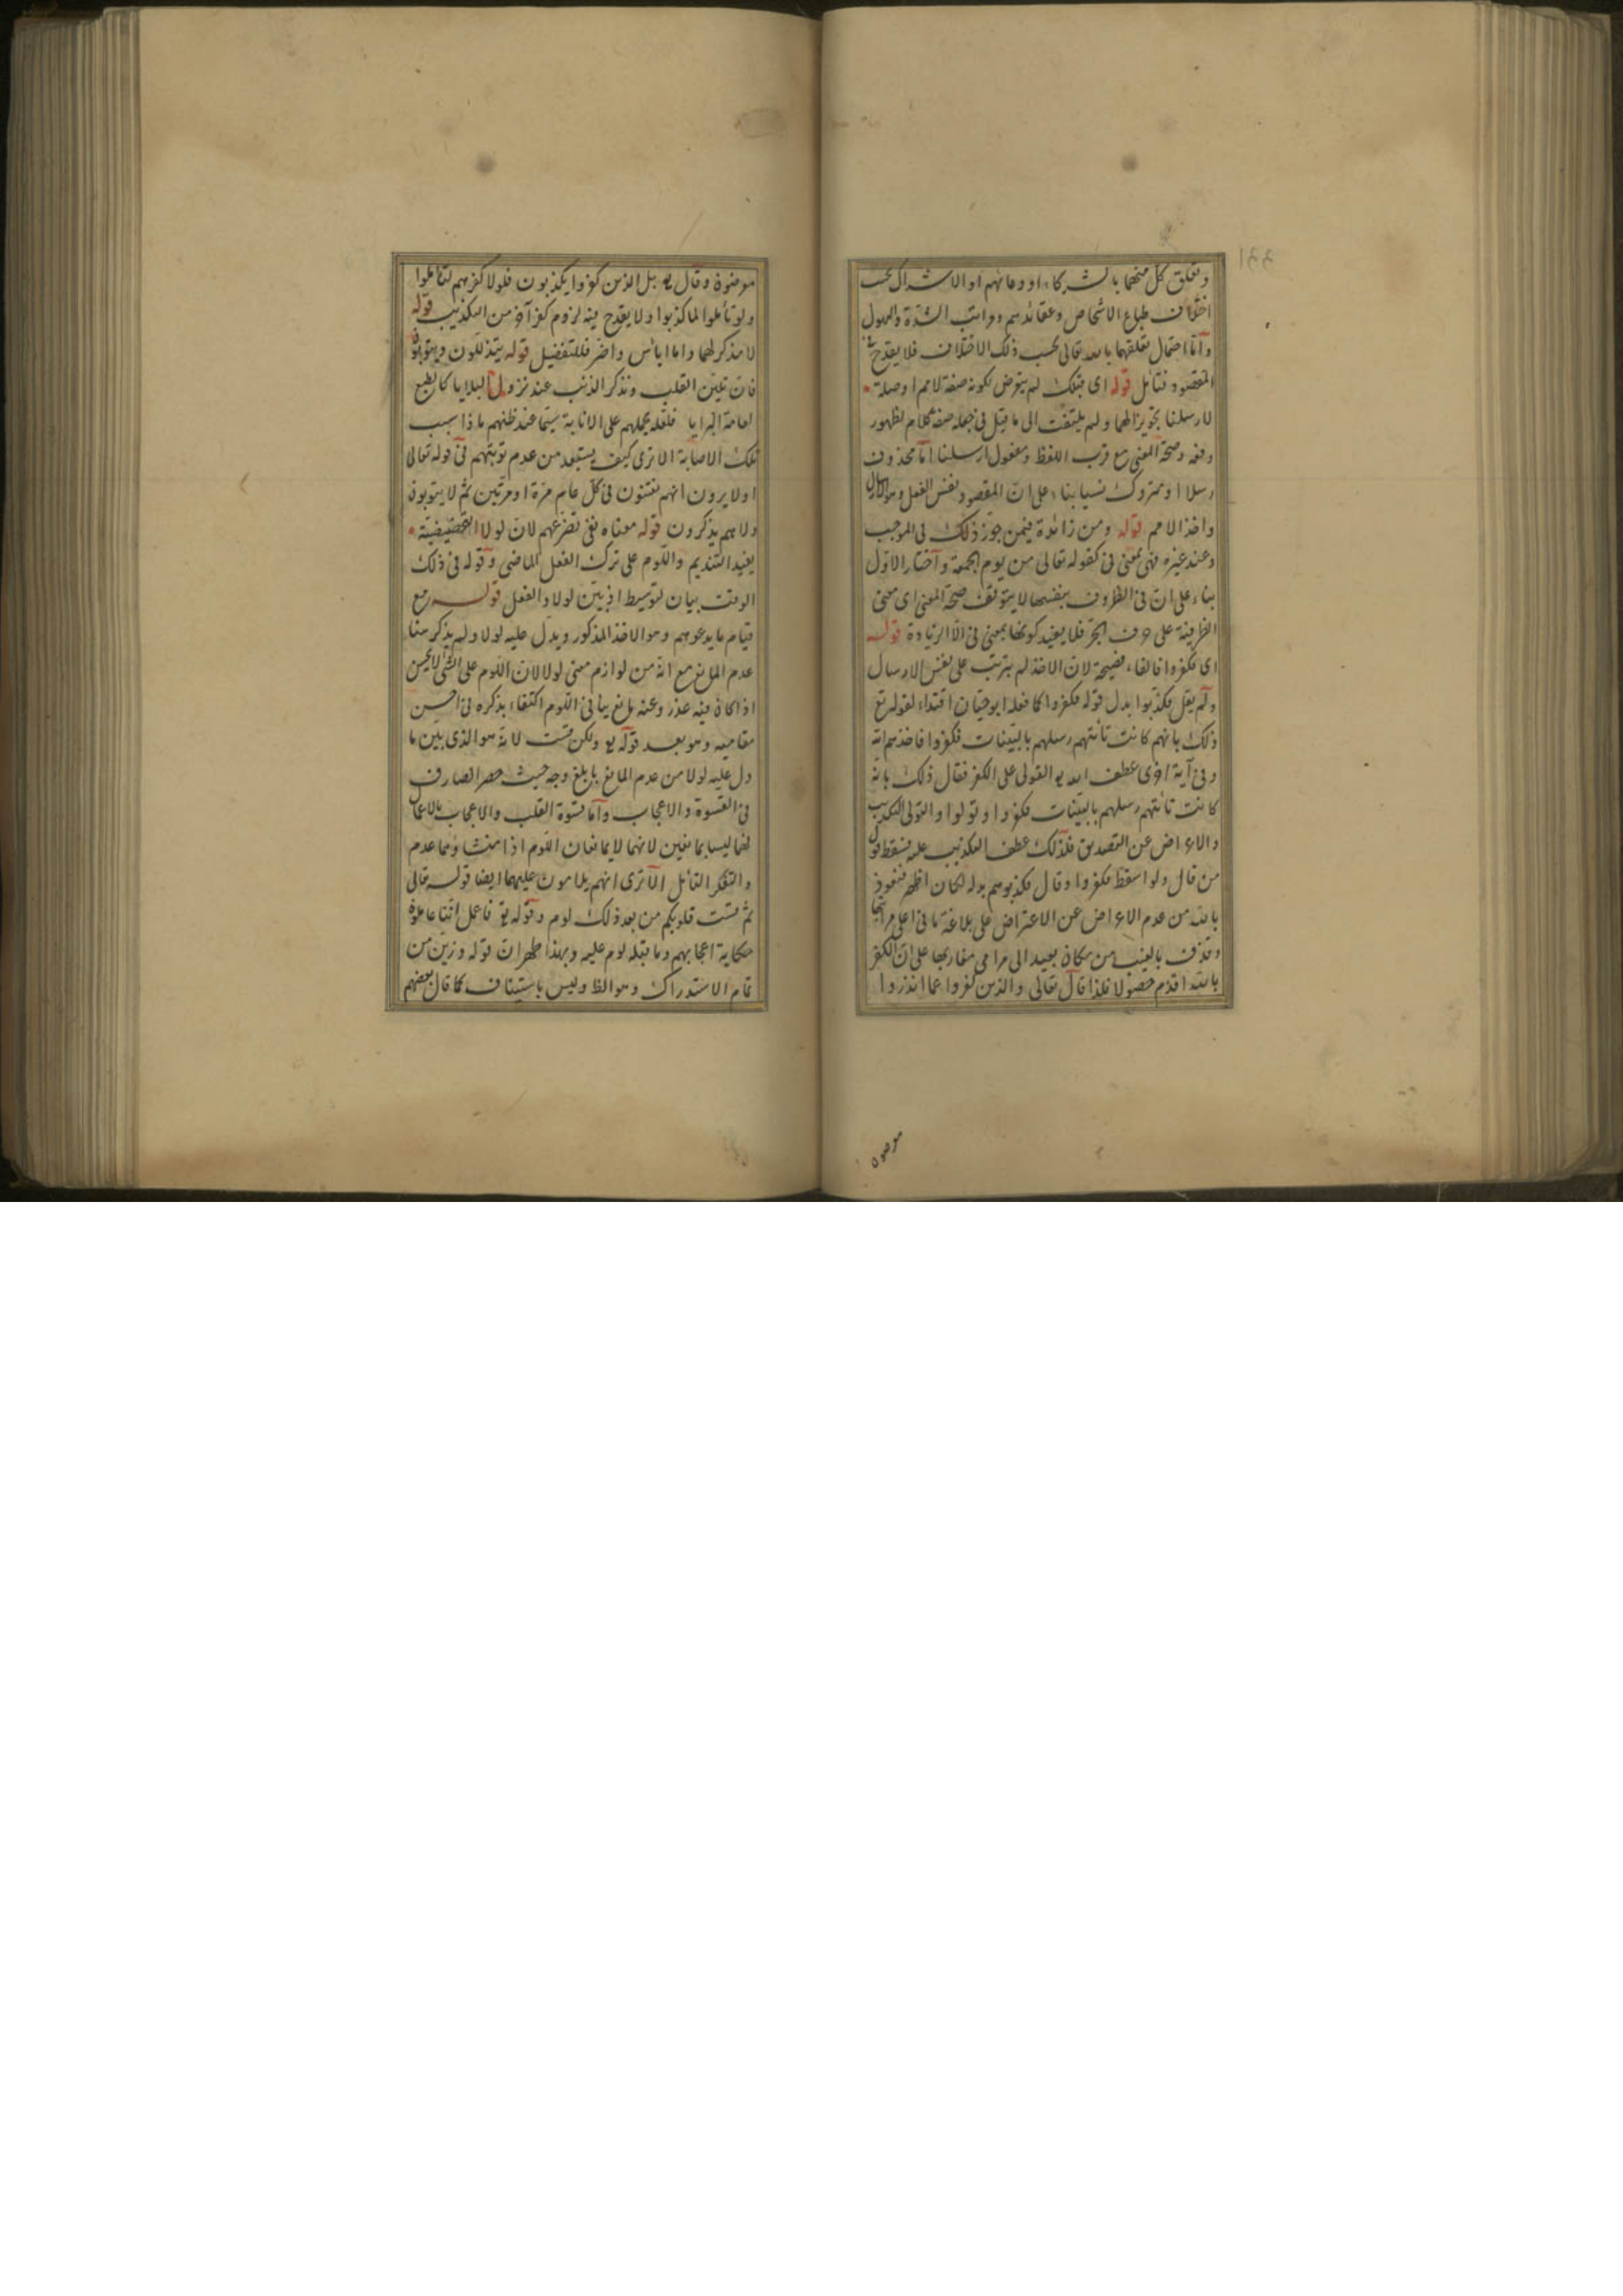 وتعلق كل منهما بالشركاء او دعائهم او الاشراك بحسب
اختلاف طباع الاشخاص وعقائدهم ومراتب الشدة والهول
واما احتمال تعلقهما بالله تعالى بحسب ذلك الاختلاف فلا يقدح في
المقصود فتأمل قوله اى قبلك لم يتعرض لكونه صفة لامم او صلة
لارسلنا تجويزا لهما ولم يلتفت الى ما قيل فى جعله صفة كلام لظهور
دفعه وصحة المعنى مع قرب اللفظ ومفعول ارسلنا اما محذوف
رسلا او متروك نسيا بناء على ان المقصود نفس الفعل وهو الارسال
واخذ الامم قوله ومن زائدة فيمن جوز ذلك فى الموجب
وعند غيره فهى بمعنى فى كقوله تعالى من يوم الجمعة واختار الاول
بناء على ان فى الظروف بنفسها لا يتوقف صحة المعنى اى معنى
الظرفية على حرف الجر فلا يفيد كونها بمعنى فى الا الزيادة قوله
اى فكفروا فالفاء فصيحة لان الاخذ لم يترتب على نفس الارسال
ولم يقل فكذبوا بدل قوله فكفروا كما فعله ابو حيان اقتداء لقوله تع
ذلك بانهم كانت تأتيهم رسلهم بالبينات فكفروا فاخذهم الله
وفى آية اخرى عطف الله يع التولى على الكفر فقال ذلك بانه
كانت تأتيهم رسلهم بالبينات فكفروا وتولوا والتولى التكذيب
والاعراض عن التصديق فلذلك عطف التكذيب عليه فسقط قول
من قال ولو اسقط فكفروا وقال فكذبوهم بدله لكان اظهر فنعوذ
بالله من عدم الاعراض عن الاعتراض على بلاغة ما فى اعلى مراتبها
وقذف بالغيب من مكان بعيد الى مرامى مغاربها على ان الكفر
بالله اقدم حصولا فلذا قال تعالى والذين كفروا عما انذروا
معرضون
معرضون وقال يع بل الذين كفروا يكذبون فلولا كفرهم لتأملوا
ولو تأملوا لما كذبوا ولا يقدح فيه لزوم كفر آخر من التكذيب قوله
لا مذكر لهما واما ابأس واضر فللتفضيل قوله يتذللون ويتوبون
فان تليين القلب وتذكر الذنب عند نزول البلايا كالطبع
لعامة البرايا فلعله يحملهم على الانابة سيما عند ظنهم ماذا سبب
تلك الاصابة الا ترى كيف يستبعد من عدم توبتهم فى قوله تعالى
اولا يرون انهم يفتنون فى كل عام مرة او مرتين ثم لا يتوبون
ولا هم يذكرون قوله معناه نفى تضرعهم لان لولا التحضيضية
يفيد التنديم واللوم على ترك الفعل الماضى وقوله فى ذلك
الوقت بيان لتوسيط اذ بين لولا والفعل قوله مع
قيام ما يدعوهم وهو الاخذ المذكور ويدل عليه لولا ولم يذكر هنا
عدم المانع مع انه من لوازم معنى لولا لان اللوم على الشئ لا يحسن
اذا كان فيه عذر وعنه مانع ينافى اللوم اكتفاء بذكره فى احسن
مقاميه وهو بعد قوله يع ولكن قست لانه هو الذى بين ما
دل عليه لولا من عدم المانع بابلغ وجه حيث حصر الصارف
فى القسوة والاعجاب واما قسوة القلب والاعجاب بالاعمال
فهما ليسا بمانعين لانهما لا يمانعان اللوم اذا منشاؤهما عدم
والتفكر التأمل الا ترى انهم يلامون عليهما ايضا قوله تعالى
ثم قست قلوبكم من بعد ذلك لوم وقوله يع فاعمل اننا عاملون
حكاية اعجابهم وما قبله لوم عليه وبهذا ظهر ان قوله وزين من
تمام الاستدراك وهو الظ وليس باستيناف كما قال بعضهم